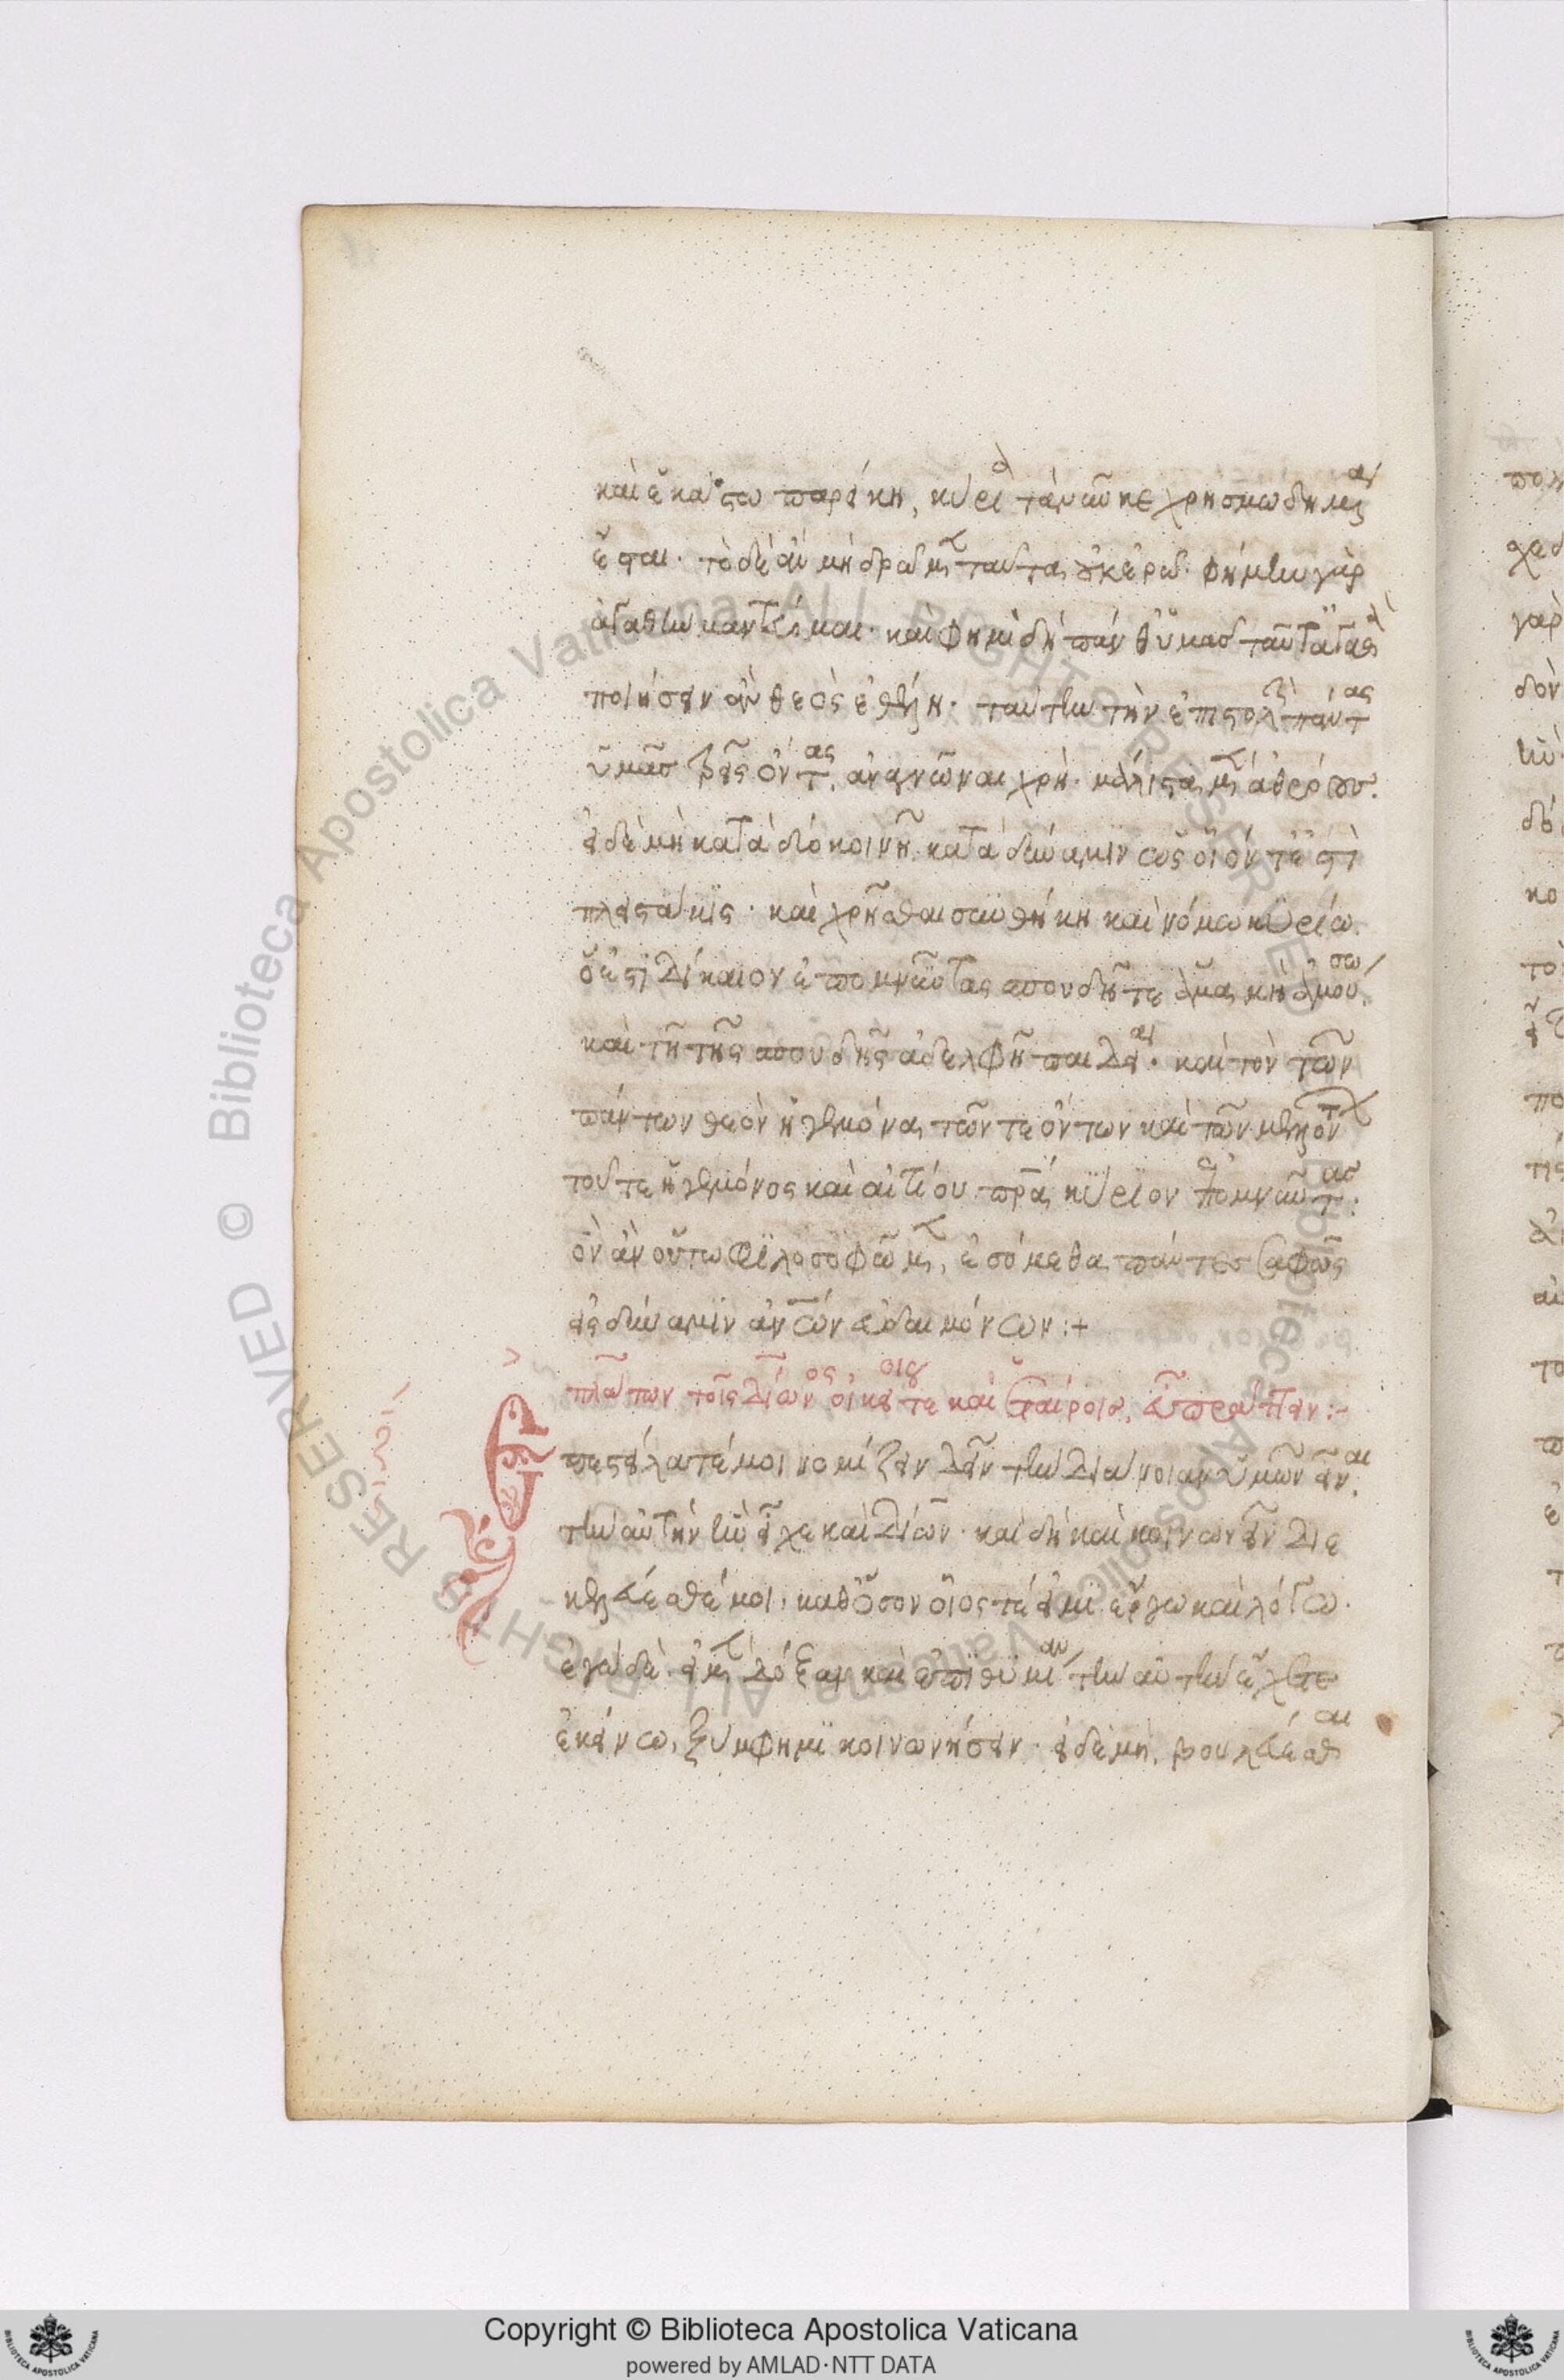 καὶ ἑκάστω παρείκη, κυρία τὰ νῦν κεχρησμωδημένα
ἔσται· τὸ δὲ ἂν μὴ δρῶμεν ταῦτα, οὐκ ἐρῶ· φήμην γὰρ
ἀγαθὴν μαντεύομαι· καὶ φημὶ δὴ πάνθ' ὑμᾶς ταῦτα ἀγαθὰ
ποιήσειν ἂν θεὸς ἐθέλη· ταύτην τὴν ἐπιστολὴν πάντας
ὑμᾶς τρεῖς ὄντας, ἀναγνῶναι χρή· μάλιστα μὲν ἁθρόους.
εἰ δὲ μὴ κατὰ δύο κοινῆ κατὰ δύναμιν ὡς οἷόν τ' ἐστὶ
πλειστάκις· καὶ χρῆσθαι συνθήκη καὶ νόμω κυρίω
ὅ ἐστι δίκαιον ἐπομνύντας σπουδῆ τε ἅμα μὴ ἀμούσω,
καὶ τῆ τῆς σπουδῆς ἀδελφῆ παιδεία· καὶ τὸν τῶν
πάντων θεὸν ἡγεμόνα, τῶν τε ὄντων καὶ τῶν μελλόντων
τοῦ τε ἡγεμόνος καὶ αἰτίου πατέρα κύριον ἐπομνύντας·
ὃν ἂν οὕτω φιλοσοφῶμεν, εἰσόμεθα πάντες σαφῶς
εἰς δύναμιν ἀνθρώπων εὐδαιμόνων :+
πλάτων τοῖς δίωνος οἰκείοις τε καὶ ἑταίροις, εὖ πράττειν :-
Ἐπεστείλατέ μοι νομίζειν δεῖν τὴν διάνοιαν ὑμῶν εἶναι
τὴν αὐτὴν ἣν εἶχε καὶ δίων· καὶ δὴ καὶ κοινωνεῖν διε
κελεύεσθέ μοι, καθ' ὅσον οἷός τέ εἰμι ἔργω καὶ λόγω·
ἐγὼ δὲ εἰ μὲν δόξαν καὶ ἐπιθυμίαν τὴν αὐτὴν ἔχετε
ἐκείνω, ξύμφημι κοινωνήσειν· εἰ δὲ μή, βουλεύεσθαι